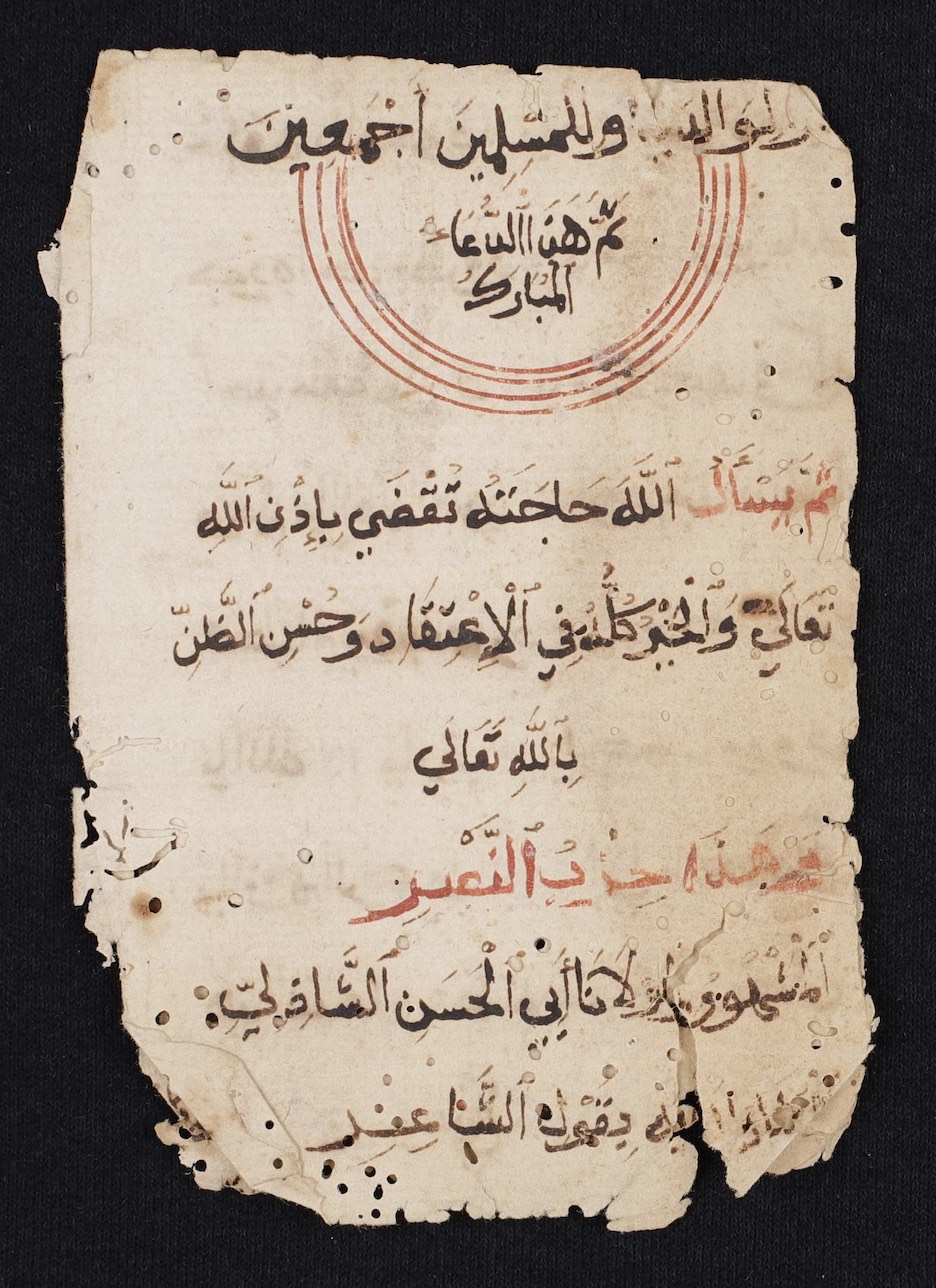 ولوالديه وللمسلمين أَجْمَعِينَ
تَمَّ هَذَا الدُّعَا
المُبَارَك
ثُمَّ يَسْأَلُ اللَّهَ حَاجَتَهُ تُقْضَي بِإِذْنِ اللَّهِ
تَعَالَي وَالْخَيْرُ كُلُّهُ فِي الْاِعْتِقَادِ وَحُسْنِ الظَّنِّ
بِاللَّهِ تَعَالَي
وَهَذَا حِزْبُ النَّصْرِ
الْمَشْهُورُ لِمَوْلَانَا أَبِي الْحَسَنِ الشَّاذِلِيّ
يَقُولُ الشَّاعِرُ